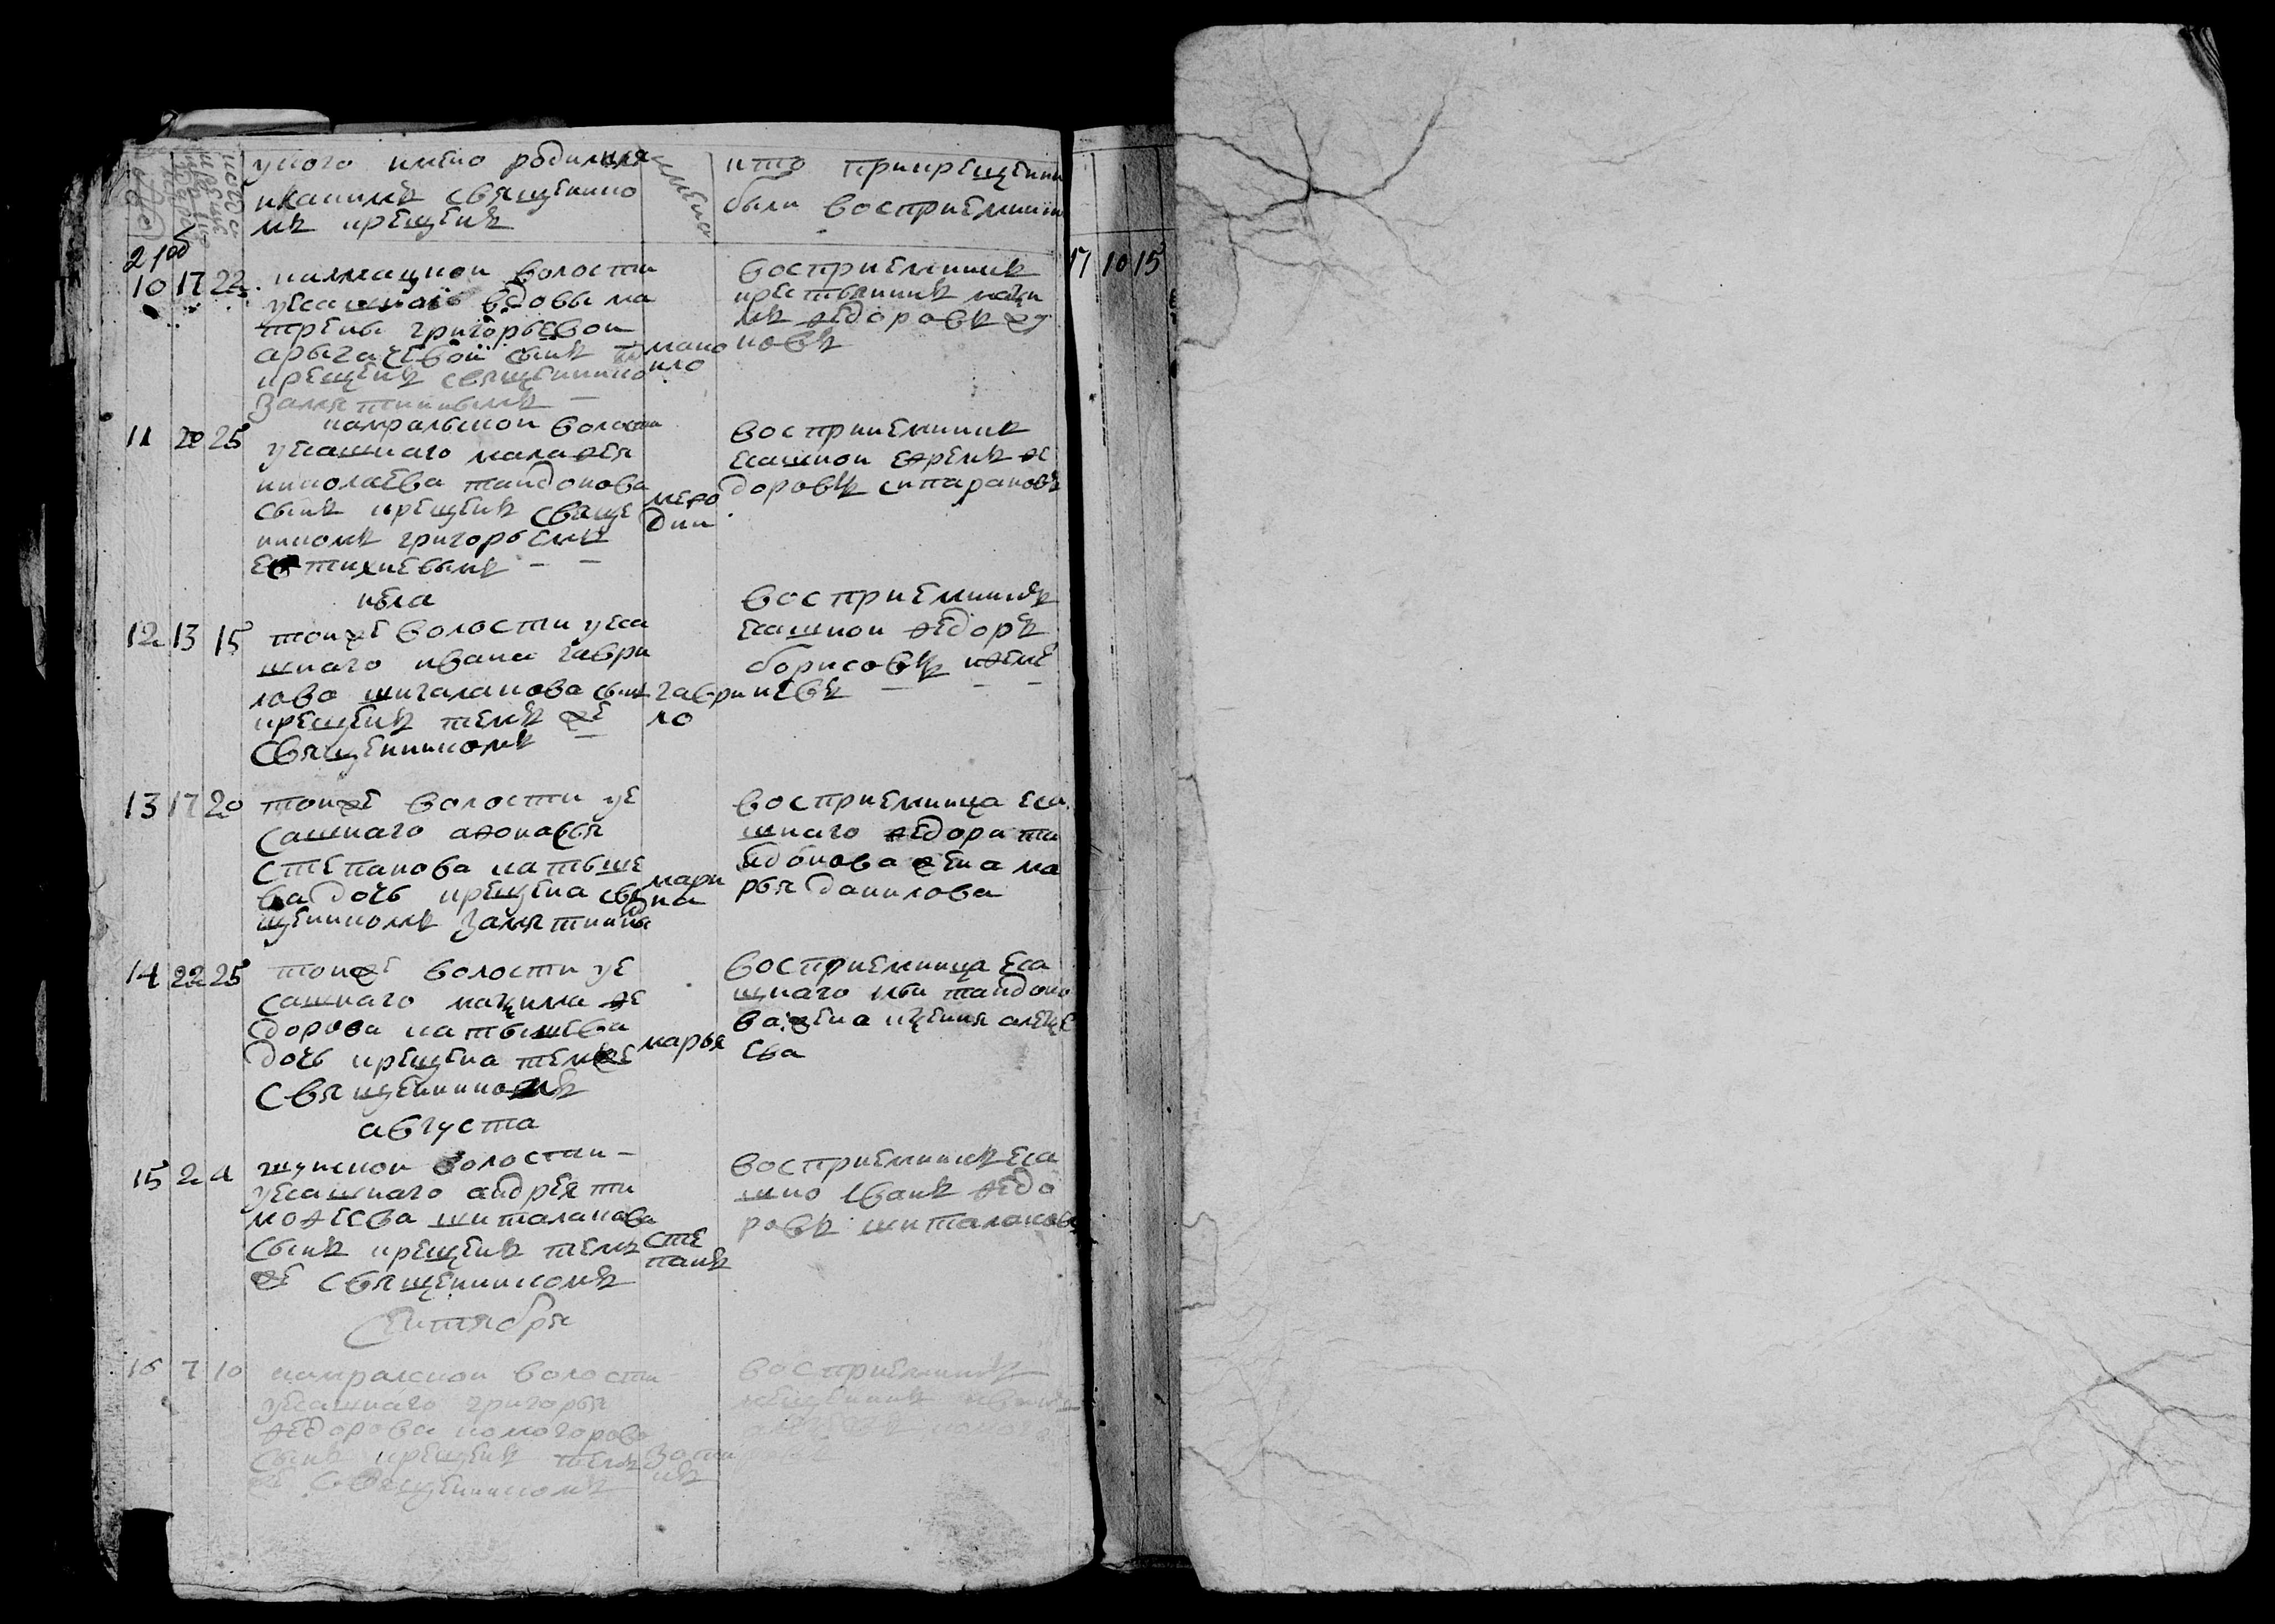 у кого имено родился
и каким священиком
мъ крещенъ
имена
кто при крещении
были восприемники
10 17 22 калмацкои волости
уесашнои вдовы ма
трены григорьевои
арыгачевои сынъ
крещенъ священико
Замятинымъ —
мано
ило
восприемникъ
крестьянинъ макси
мъ федоровъ жу
ковъ
11 20 25 камральскои волости
уесашнаго малафея
николаева таидонова
сынъ крещенъ свяще
никомъ григорьемъ
евтихиевымъ — —
мефо
дии
восприемникъ
есашнои ефремъ фе
доровъ
июла
12 13 15 тоиже волости уеса
шнаго ивана гаври
лова шигаланова сынъ
крещенъ темъ же
священикомъ
гаври
ло
восприемникъ
есашнои федоръ
борисовъ
13 17 20 тоиже волости уе
сашнаго афонасья
степанова катыше
ва дочь крещена свя
щеникомъ Замятины
мари
на
восприемница еса
шнаго федора та
идонова жена ма
рья данилова
14 22 25 тоиже волости уе
сашнаго максима фе
дорова катышева
дочь крещена темже
священикомъ
марья
восприемница еса
шнаго ильи таидоно
ва жена ксения алексе
ева
августа
15 2 4 шуискои волости —
уесашнаго андрея ти
мофеева шиталанова
сынъ крещенъ темъ
же священикомъ
сте
панъ
восприемникъ еса
шно иванъ федо
ровъ шиталановъ
сентября
16 7 10 камралскои волости
уесашнаго григорья
федорова комогорово
сынъ крещенъ темъ
же священикомъ
Зоти
къ
восприемникъ
17 10 15